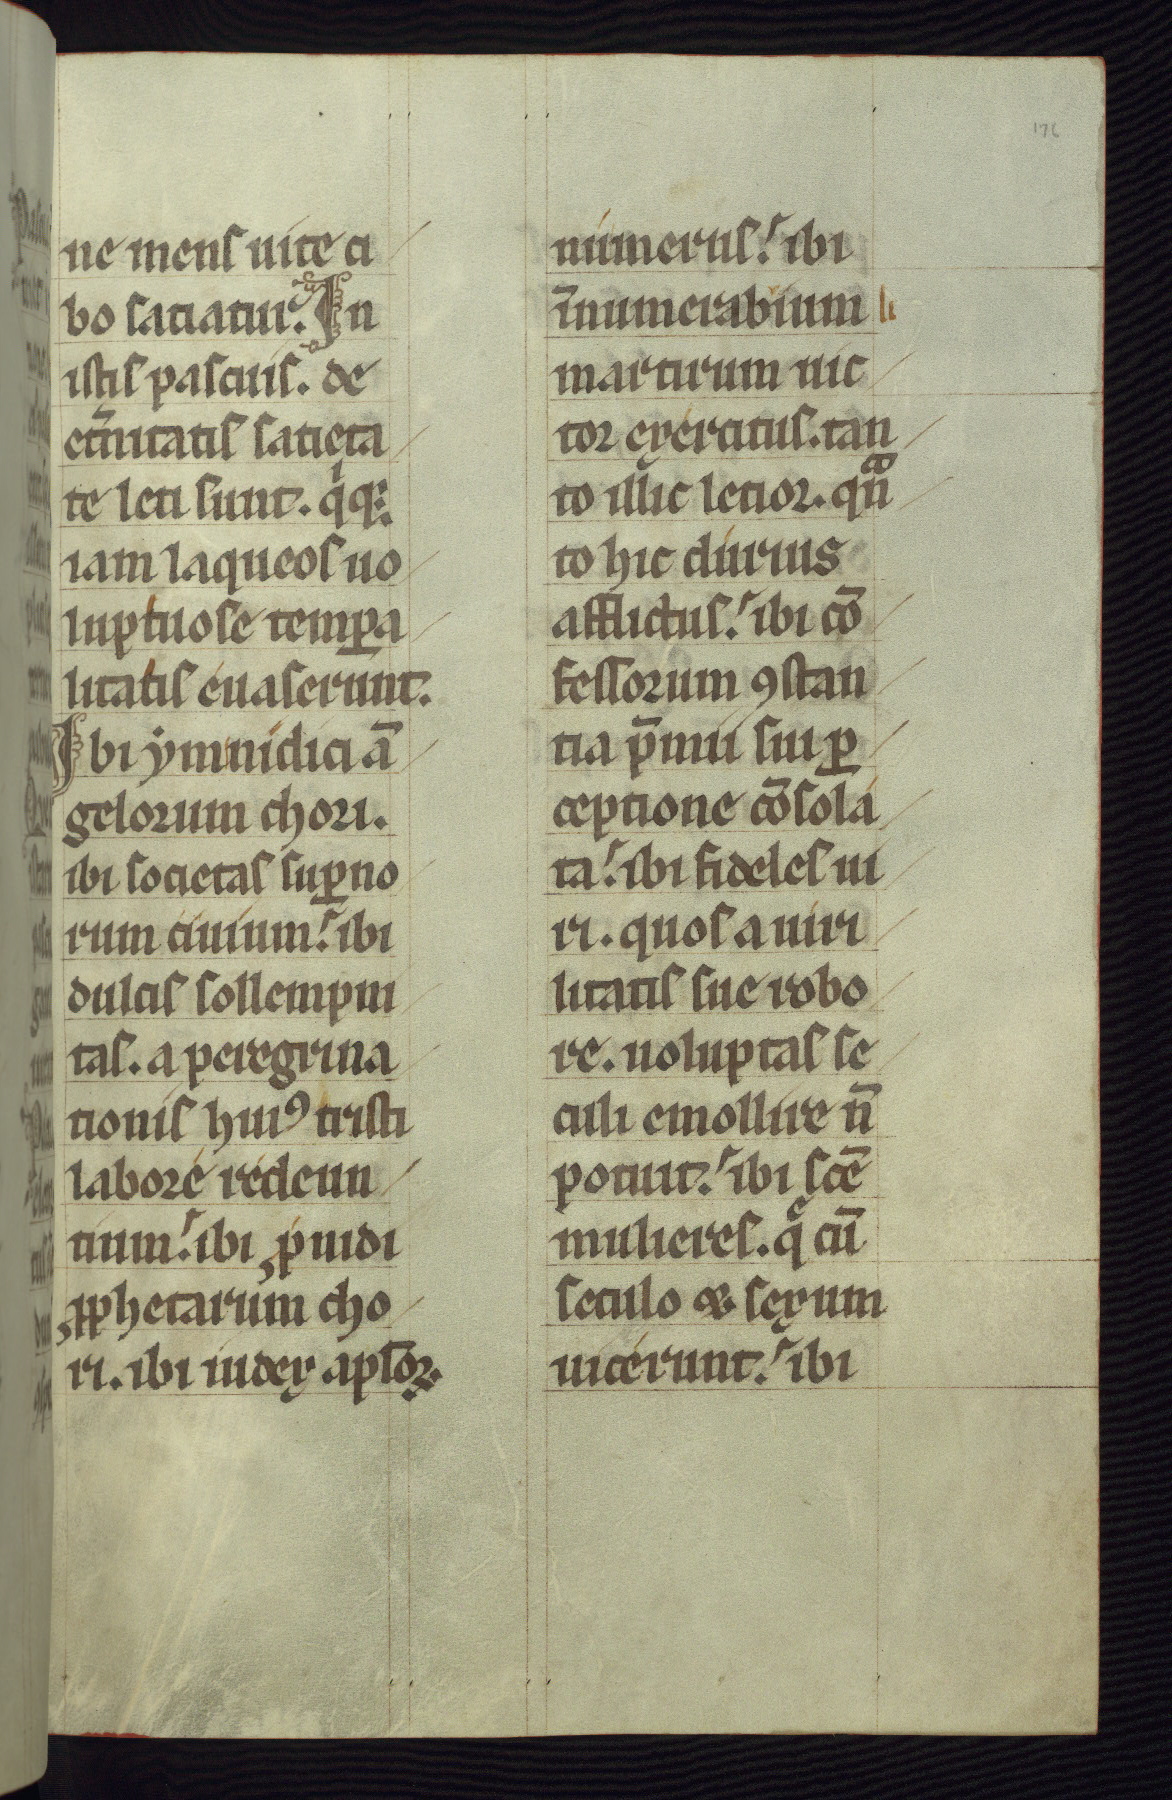 176
ne mens uite ci
bo satiatur. In
istis pascuis. de
et̃nitatis satieta
te leti sunt. qͥqꝫ
iam laqueos uo
luptuose temꝑa
litatis euaserunt.
Ibi ymnidici ã
gelorum chori.
ibi societas suꝑno
rum ciuium. ibi
dulcis sollempni
tas. a peregrina
tionis huiꝰ tristi
labore redeun
tium. ibi ꝓuidi
ꝓphetarum cho
ri. ibi iudex aplõꝝ
numerus. ibi
ĩnumerabium li
martirum uic
tor exercitus. tan
to illic letior. qᷓn
to hic durius
afflictus. ibi cõ
fessorum ꝯstan
tia p̃mii sui ꝑ
ceptione cõsola
ta. ibi fideles ui
ri. quos a uiri
litatis sue robo
re. uoluptas se
culi emollire ñ
potuit. ibi scẽ
mulieres. q̃ cũ
seculo & sexum
uicerunt. ibi